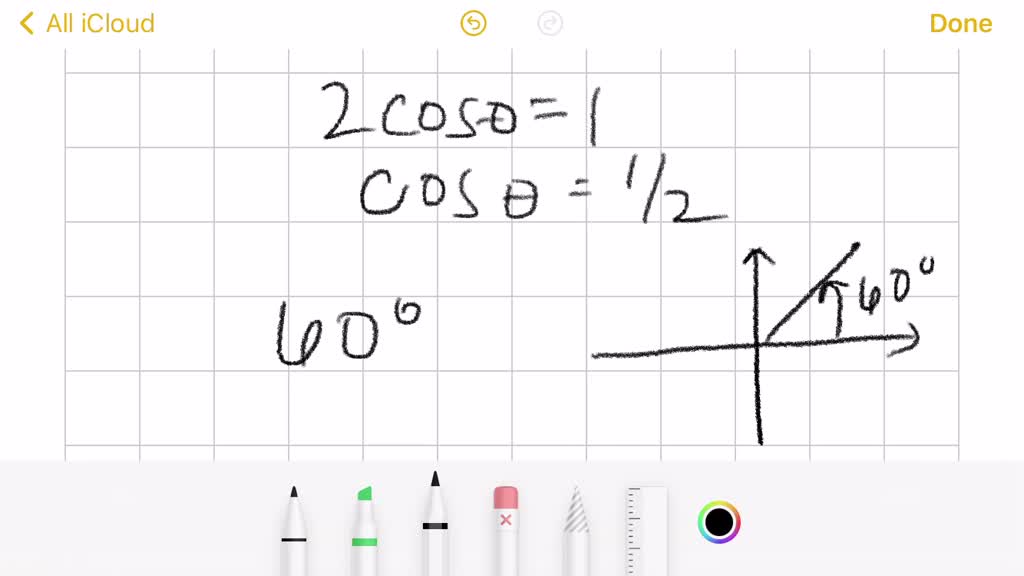 All iCloud
Done
2cosθ=1
cosθ=1/2
60°
60°